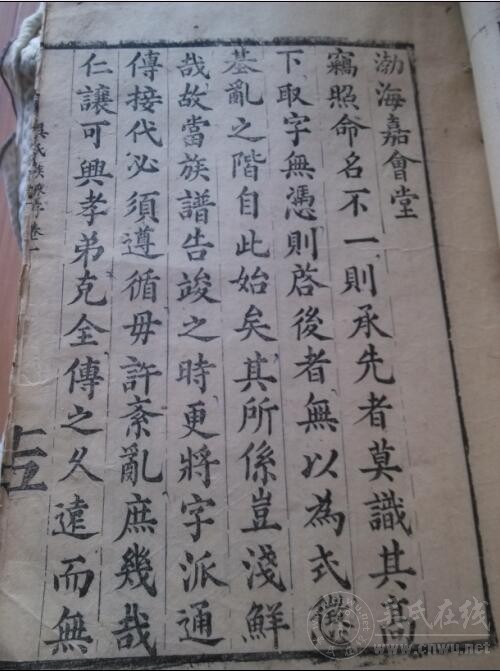 渤海嘉會堂
竊照命名不一則承先者莫識其高
下取字無憑則啓後者無以為式
基亂之階自此始矣其所係豈淺鮮
哉故當族譜告竣之時更將字派通
傳接代必須遵循毋許紊亂庶幾哉
仁讓可興孝弟克全傳之久遠而無
卷一
吴氏在线
www.cnwu.net